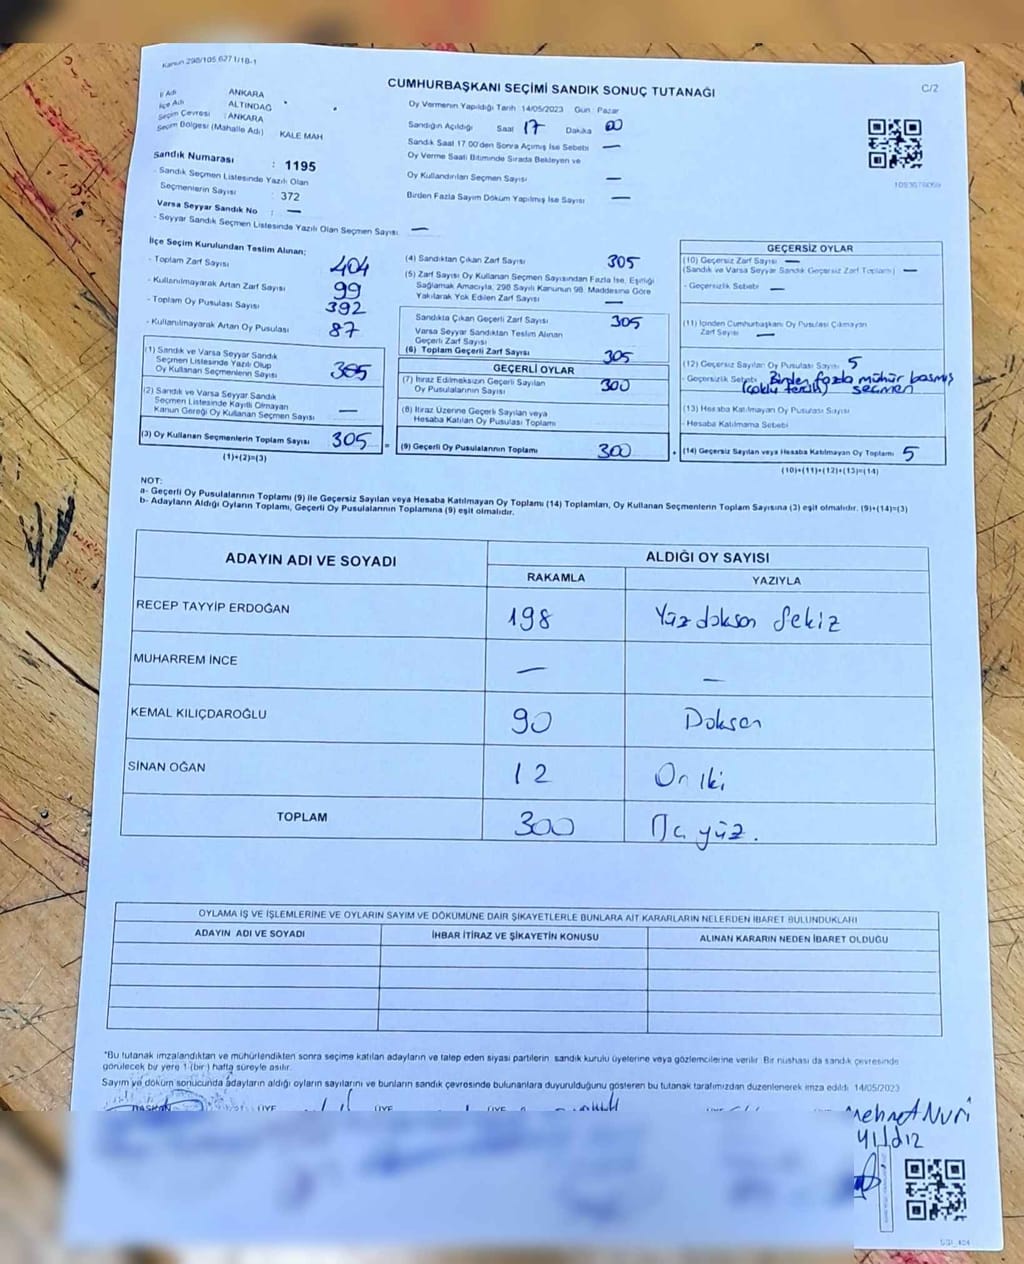 Kanun 298/105 6271/18-1
C/2
CUMHURBAŞKANI SEÇİMİ SANDIK SONUÇ TUTANAĞI
İl Adı ANKARA
İlçe Adı ALTINDAĞ
Seçim Çevresi : ANKARA
Seçim Bölgesi (Mahalle Adı) KALE MAH
Sandık Numarası : 1195
- Sandık Seçmen Listesinde Yazılı Olan
Seçmenlerin Sayısı : 372
Varsa Seyyar Sandık No : —
- Seyyar Sandık Seçmen Listesinde Yazılı Olan Seçmen Sayısı —
Oy Vermenin Yapıldığı Tarih :14/05/2023 Gün : Pazar
Sandığın Açıldığı Saat 17 Dakika 00
Sandık Saat 17.00'den Sonra Açımış İse Sebebi —
Oy Verme Saati Bitiminde Sırada Bekleyen ve
Oy Kullandırılan Seçmen Sayısı —
Birden Fazla Sayım Döküm Yapılmış İse Sayısı —
İlçe Seçim Kurulundan Teslim Alınan;
- Toplam Zarf Sayısı 404
- Kullanılmayarak Artan Zarf Sayısı 99
- Toplam Oy Pusulası Sayısı 392
- Kullanılmayarak Artan Oy Pusulası 87
(1) Sandık ve Varsa Seyyar Sandık
Seçmen Listesinde Yazılı Olup
Oy Kullanan Seçmenlerin Sayısı 305
(2) Sandık ve Varsa Seyyar Sandık
Seçmen Listesinde Kayıtlı Olmayan
Kanun Gereği Oy Kullanan Seçmen Sayısı —
(3) Oy Kullanan Seçmenlerin Toplam Sayısı 305
(1)+(2)=(3)
(4) Sandıktan Çıkan Zarf Sayısı 305
(5) Zarf Sayısı Oy Kullanan Seçmen Sayısından Fazla İse, Eşitliği
Sağlamak Amacıyla, 298 Sayılı Kanunun 98. Maddesine Göre
Yakılarak Yok Edilen Zarf Sayısı —
Sandıkta Çıkan Geçerli Zarf Sayısı 305
Varsa Seyyar Sandıktan Teslim Alınan
Geçerli Zarf Sayısı
(6) Toplam Geçerli Zarf Sayısı 305
GEÇERLİ OYLAR
(7) İtiraz Edilmeksizin Geçerli Sayılan
Oy Pusulalarının Sayısı 300
(8) İtiraz Üzerine Geçerli Sayılan veya
Hesaba Katılan Oy Pusulası Toplamı
= (9) Geçerli Oy Pusulalarının Toplamı 300
GEÇERSİZ OYLAR
(10) Geçersiz Zarf Sayısı —
(Sandık ve Varsa Seyyar Sandık Geçersiz Zarf Toplamı) —
- Geçersizlik Sebebi —
(11) İçinden Cumhurbaşkanı Oy Pusulası Çıkmayan
Zarf Sayısı —
(12) Geçersiz Sayılan Oy Pusulası Sayısı 5
- Geçersizlik Sebebi Birden fazla mühür basmış
(çoklu tercih) seçmen
(13) Hesaba Katılmayan Oy Pusulası Sayısı
- Hesaba Katılmama Sebebi
+ (14) Geçersiz Sayılan veya Hesaba Katılmayan Oy Toplamı 5
(10)+(11)+(12)+(13)=(14)
NOT:
a- Geçerli Oy Pusulalarının Toplamı (9) ile Geçersiz Sayılan veya Hesaba Katılmayan Oy Toplamı (14) Toplamları, Oy Kullanan Seçmenlerin Toplam Sayısına (3) eşit olmalıdır. (9)+(14)=(3)
b- Adayların Aldığı Oyların Toplamı, Geçerli Oy Pusulalarının Toplamına (9) eşit olmalıdır.
ADAYIN ADI VE SOYADI
ALDIĞI OY SAYISI
RAKAMLA YAZIYLA
RECEP TAYYİP ERDOĞAN 198 Yüz doksan Sekiz
MUHARREM İNCE — —
KEMAL KILIÇDAROĞLU 90 Doksan
SİNAN OĞAN 12 On iki
TOPLAM 300 Üç yüz.
OYLAMA İŞ VE İŞLEMLERİNE VE OYLARIN SAYIM VE DÖKÜMÜNE DAİR ŞİKAYETLERLE BUNLARA AİT KARARLARIN NELERDEN İBARET BULUNDUKLARI
ADAYIN ADI VE SOYADI İHBAR İTİRAZ VE ŞİKAYETİN KONUSU ALINAN KARARIN NEDEN İBARET OLDUĞU
*Bu tutanak imzalandıktan ve mühürlendikten sonra seçime katılan adayların ve talep eden siyasi partilerin sandık kurulu üyelerine veya gözlemcilerine verilir. Bir nüshası da sandık çevresinde
görülecek bir yere 1 (bir) hafta süreyle asılır.
Sayım ve döküm sonucunda adayların aldığı oyların sayılarını ve bunların sandık çevresinde bulunanlara duyurulduğunu gösteren bu tutanak tarafımızdan düzenlenerek imza edildi. 14/05/2023
BAŞKAN ÜYE ÜYE ÜYE
Mehmet Nuri
Yıldız